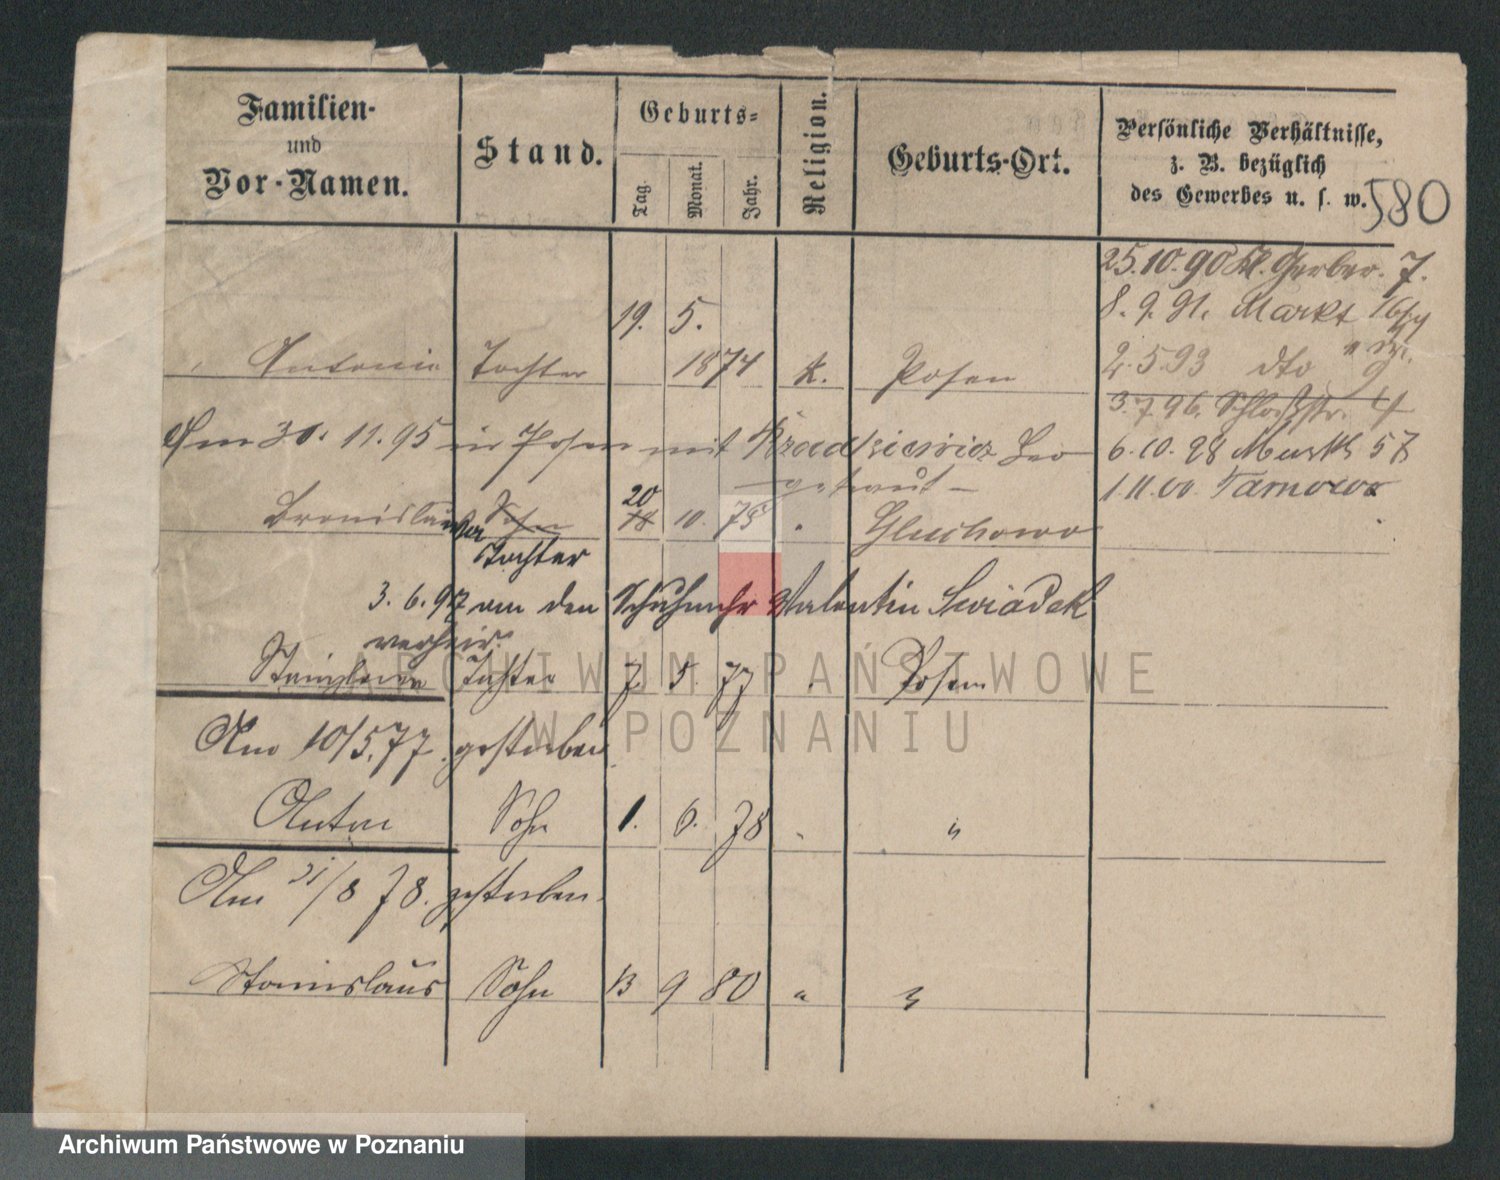 Familien-
und
Vor-Namen.
Stand.
Geburts-
Tag.
Monat.
Jahr.
Religion.
Geburts-Ort.
Persönliche Verhältnisse,
z. B. bezüglich
des Gewerbes u. s. w.
580
25.10.90 Kl. Gerber. 7.
8. 9. 91. Markt
2.5.93 dto
3.7.96. Schloßstr. 4
6.10.98 Markt 57
1.11.00 Tarnowo
19. 5.
Antonie Tochter 1874 k. Posen
Am 30. 11. 95 in Posen mit Leo
getraut
20
Bronislawa Sohn 18 10. 75 " Gluchowo
Tochter
3. 6. 97 an den Schuhmchr Valentin Swiadek
verheir.
Tochter 7. 5. 77 Posen
Am 10/5.77. gestorben
Anton Sohn 1. 6. 78 " "
Am 31/8 78. gestorben.
Stanislaus Sohn 13 9 80 " "
ARCHIWUM PAŃSTWOWE
W POZNANIU
Archiwum Państwowe w Poznaniu